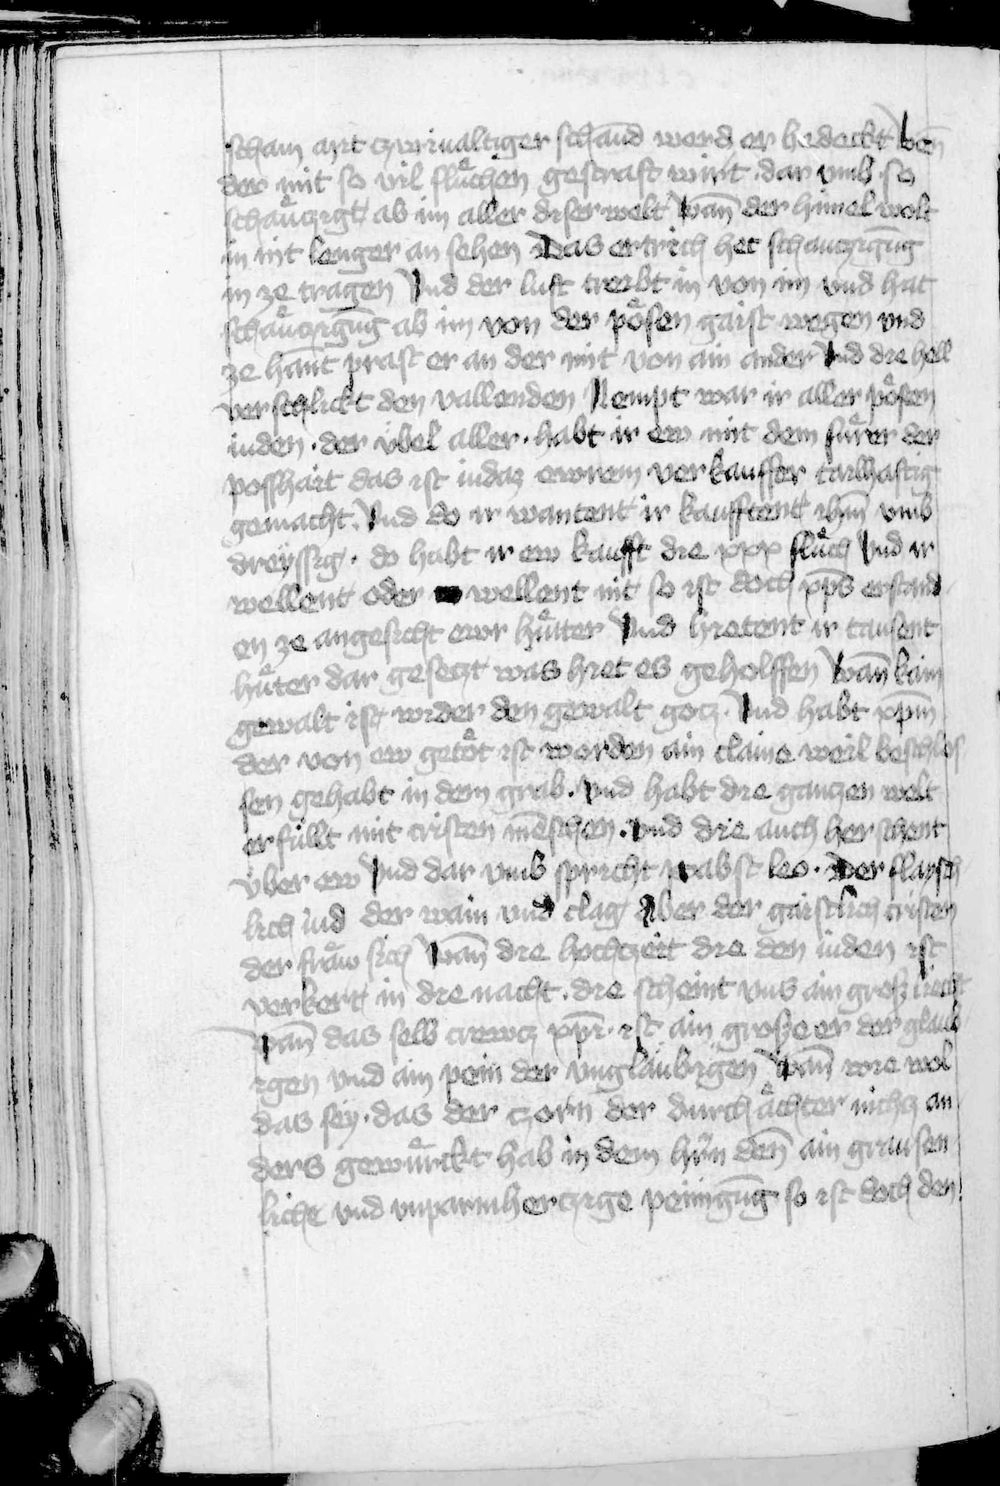 scham mit zwiualtiger schand werd er bedeckt Wen̄
der mit so vil flu̇chen gestraft wirt · dar vmb · so
schau̇czigt ab im aller diser welt Wan̄ der himel wolt
in nit lenger an sehen Das ertrich het schauczigūg
in ze tragen Vnd der luft treibt in von im vnd hat
schau̇czigūg ab im von der pösen gaist wegen vnd
ze hant prast er an der mit von ain ander Vnd die hell
verschlickt den vallenden Nempt war ir aller pösten
iuden · der übel aller · habt ir ew mit dem fürer der
posshait das ist iudaz ewrem verkauffer tailhaftig
gemacht. Vnd do ir wantent ir kaufftent ihm̄ vmb
dreyssig · do habt ir ew kaufft die xxx flu̇ch Vnd ir
wellent oder wellent nit so ist doch xp̄s erstand
en ze angesicht ewr hüter Vnd hietent ir tausent
hüter dar gesetzt was hiet es geholffen Wan̄ kain
gewalt ist wider den gewalt gotz · Vnd habt xpm̄
der von ew getöt ist worden ain claine weil beschlos
sen gehabt in dem grab · Vnd habt die ganczen welt
erfüllt mit cristen mēschen · vnd die auch herschent
über ew Vnd dar vmb spricht pabst leo · Der flaysch
lich iud der wain vnd clag Aber der gaistlich cristen
der fräw sich Wan̄ die hochzeit die den iuden ist
verkert in die nacht · die scheint vns ain grosz liecht
Wan̄ das selb crewcz xp̄i · ist ain grosze er der glaub
igen vnd ain pein der vnglaubigen Wan̄ wie wol
das sey · das der zorn der durch ächter nichcz an
ders gewürckt hab in dem hrn̄ den̄ ain grausen
liche vnd vnparmherczige peinigūg so ist doch den